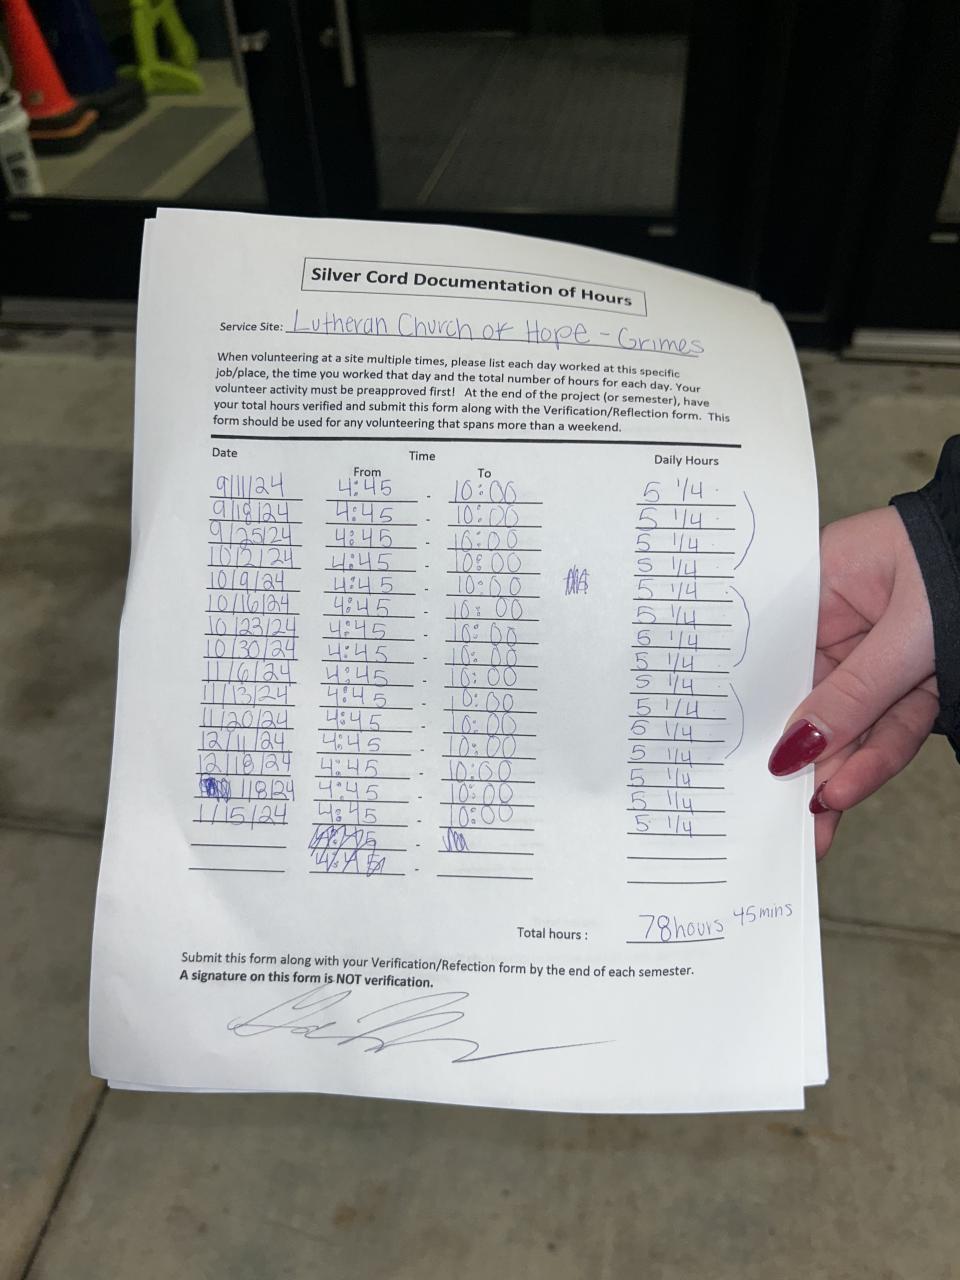 Silver Cord Documentation of Hours
Service Site: Lutheran Church of Hope - Grimes
When volunteering at a site multiple times, please list each day worked at this specific
job/place, the time you worked that day and the total number of hours for each day. Your
volunteer activity must be preapproved first! At the end of the project (or semester), have
your total hours verified and submit this form along with the Verification/Reflection form. This
form should be used for any volunteering that spans more than a weekend.
Date Time Daily Hours
From To
9/11/24 4:45 - 10:00 5 1/4
9/18/24 4:45 - 10:00 5 1/4
9/25/24 4:45 - 10:00 5 1/4
10/2/24 4:45 - 10:00 5 1/4
10/9/24 4:45 - 10:00 5 1/4
10/16/24 4:45 - 10:00 5 1/4
10/23/24 4:45 - 10:00 5 1/4
10/30/24 4:45 - 10:00 5 1/4
11/6/24 4:45 - 10:00 5 1/4
11/13/24 4:45 - 10:00 5 1/4
11/20/24 4:45 - 10:00 5 1/4
12/11/24 4:45 - 10:00 5 1/4
12/18/24 4:45 - 10:00 5 1/4
1/8/24 4:45 - 10:00 5 1/4
1/15/24 4:45 - 10:00 5 1/4
Total hours : 78hours 45mins
Submit this form along with your Verification/Refection form by the end of each semester.
A signature on this form is NOT verification.